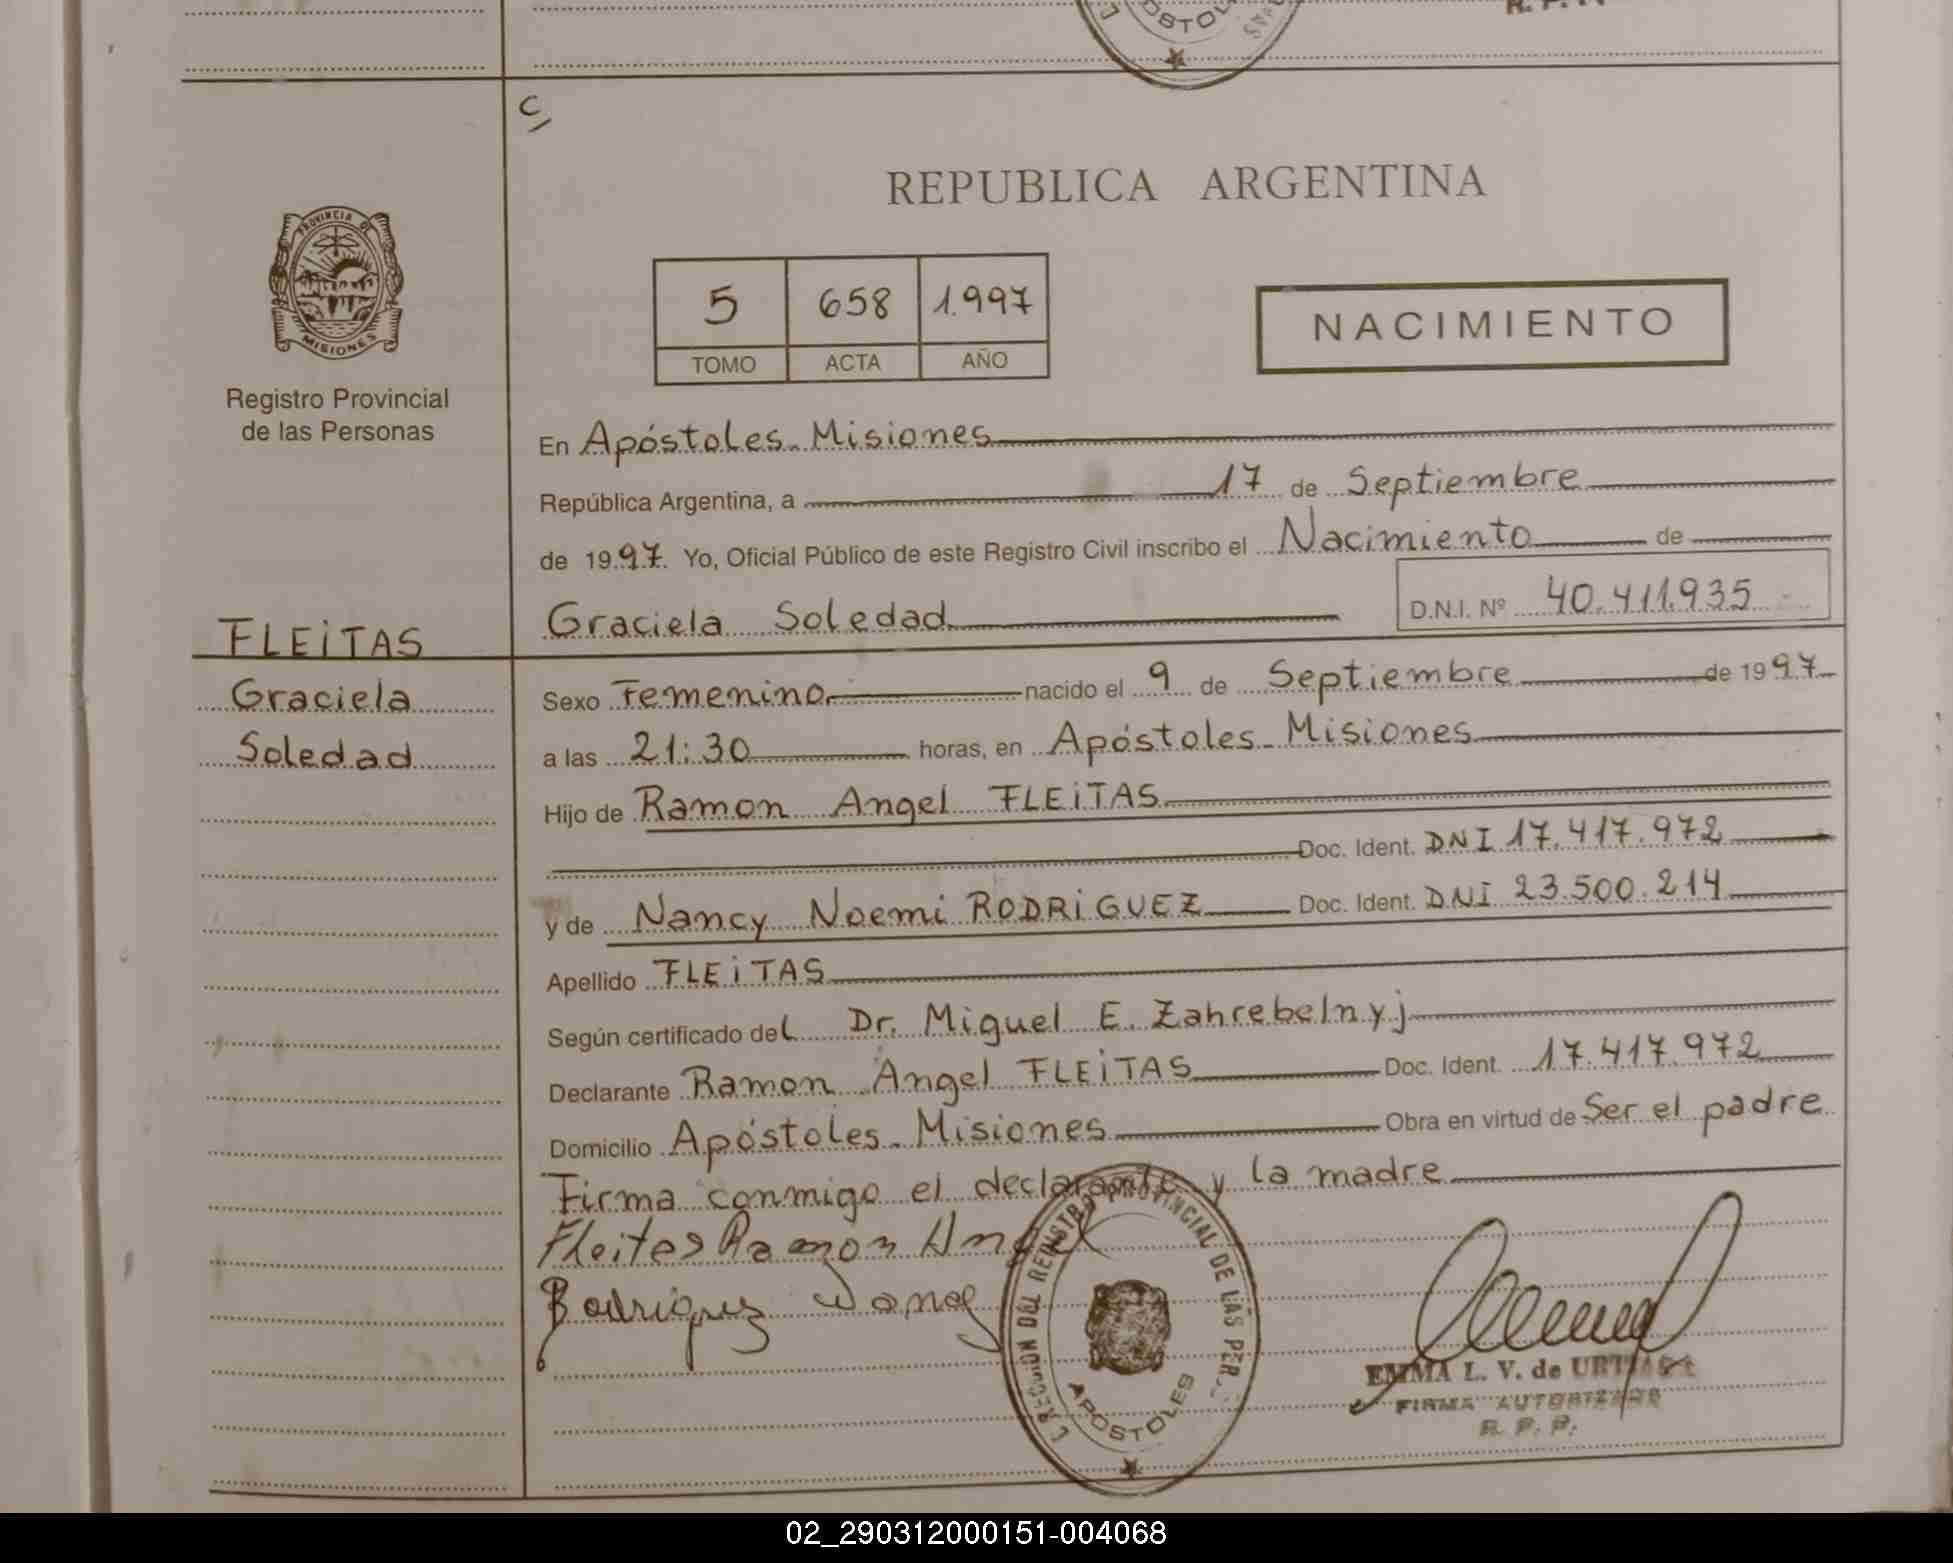 OSTOL
C/
REPUBLICA ARGENTINA
PROVINCIA DE
MISIONES
5 658 1.997
TOMO ACTA AÑO
NACIMIENTO
Registro Provincial
de las Personas
En Apóstoles. Misiones
República Argentina, a 17 de Septiembre
de 1997. Yo, Oficial Público de este Registro Civil inscribo el Nacimiento de
Graciela Soledad D.N.I. Nº 40.411.935
FLEiTAS
Graciela
Soledad
Sexo Femenino nacido el 9 de Septiembre de 1997
a las 21:30 horas, en Apóstoles. Misiones
Hijo de Ramon Angel FLEiTAS
Doc. Ident. DNI 17.417.972
y de Nancy Noemi RODRiGUEZ Doc. Ident. DNI 23.500.214
Apellido FLEiTAS
Según certificado del Dr. Miguel E. Zahrebelnyj
Declarante Ramon Angel FLEiTAS Doc. Ident. 17.417.972
Domicilio Apóstoles. Misiones Obra en virtud de Ser el padre
Firma conmigo el declarante y la madre
Fleitas Ramon Angel
Rodriguez
REGISTRO PROVINCIAL DE LAS PER
APOSTOLES
EMMA L. V. de
FIRMA AUTORIZADA
R. P. P.
02_290312000151-004068